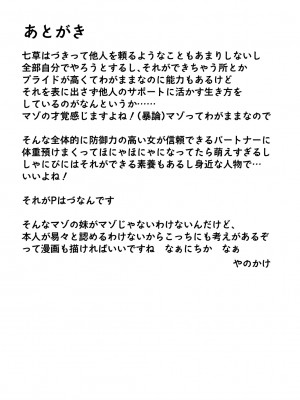 あとがき
七草はづきって他人を頼るようなこともあまりしないし
全部自分でやろうとするし、それができちゃう所とか
プライドが高くてわがままなのに能力もあるけど
それを表に出さず他人のサポートに活かす生き方を
しているのがなんというか……
マゾの才覚感じますよね！(暴論)マゾってわがままなので
そんな全体的に防御力の高い女が信頼できるパートナーに
体重預けまくってほにゃほにゃになってたら萌えすぎるし
しゃにPにはそれができる素養もあるし身近な人物で…
いいよね！
それがPはづなんです
そんなマゾの妹がマゾじゃないわけないんだけど、
本人が易々と認めるわけないからこっちにも考えがあるぞ
って漫画も描ければいいですね　なぁにちか　なぁ
やのかけ